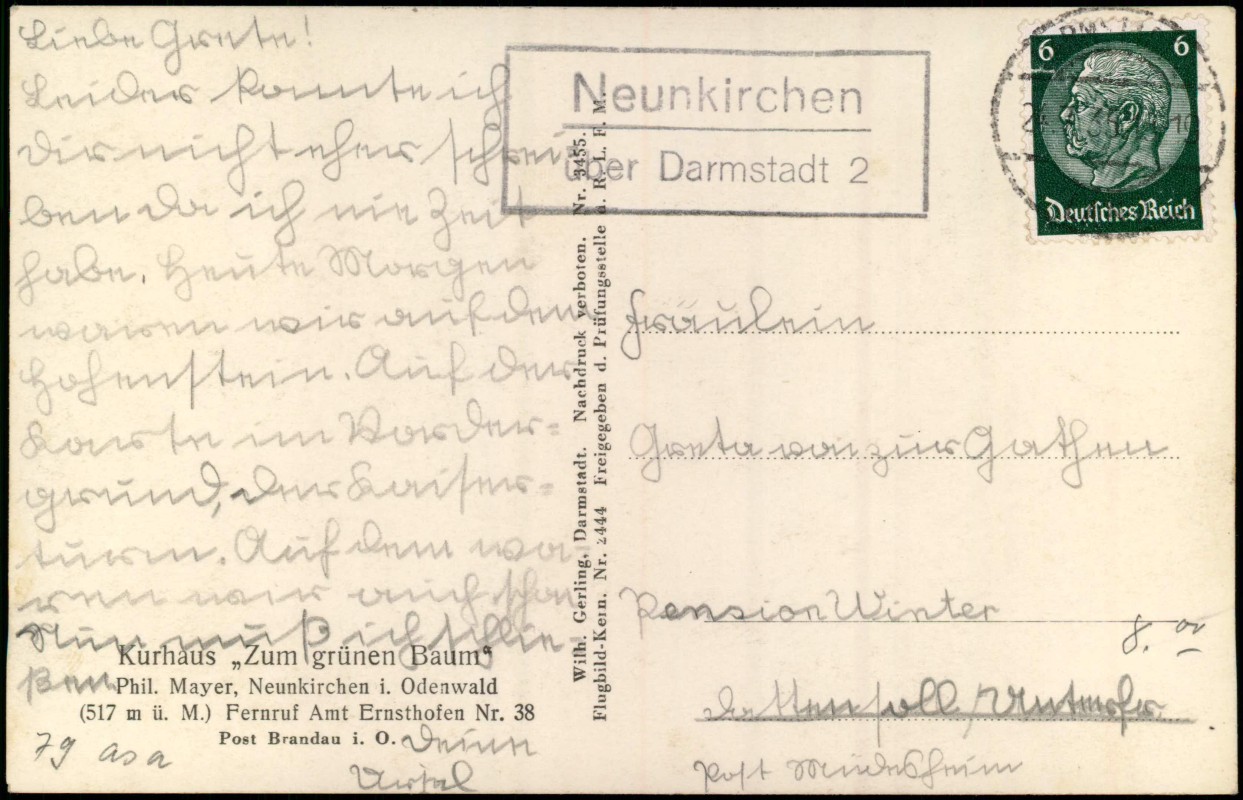 Liebe Grete!
Leider konnte ich
Dir nicht eher schrei-
ben da ich nie Zeit
habe. Heute Morgen
waren wir auf dem
Hohenstein. Auf der
Karte im Vorder=
grund, der Kaiser=
turm. Auf dem wa-
ren wir auch schon
Nun muß ich schlie-
ßen.
Deine
Ursel
Kurhaus „Zum grünen Baum“
Phil. Mayer, Neunkirchen i. Odenwald
(517 m ü. M.) Fernruf Amt Ernsthofen Nr. 38
Post Brandau i. O.
79
Wilh. Gerling, Darmstadt. Nachdruck verboten. Nr. 3455.
Flugbild-Kern. Nr. 2444 Freigegeben d. Prüfungsstelle d. R. L. F. M.
Neunkirchen
über Darmstadt 2
6 6
Deutsches Reich
Fräulein
Greta von zur Gathen
Pension Winter
8.00
Post